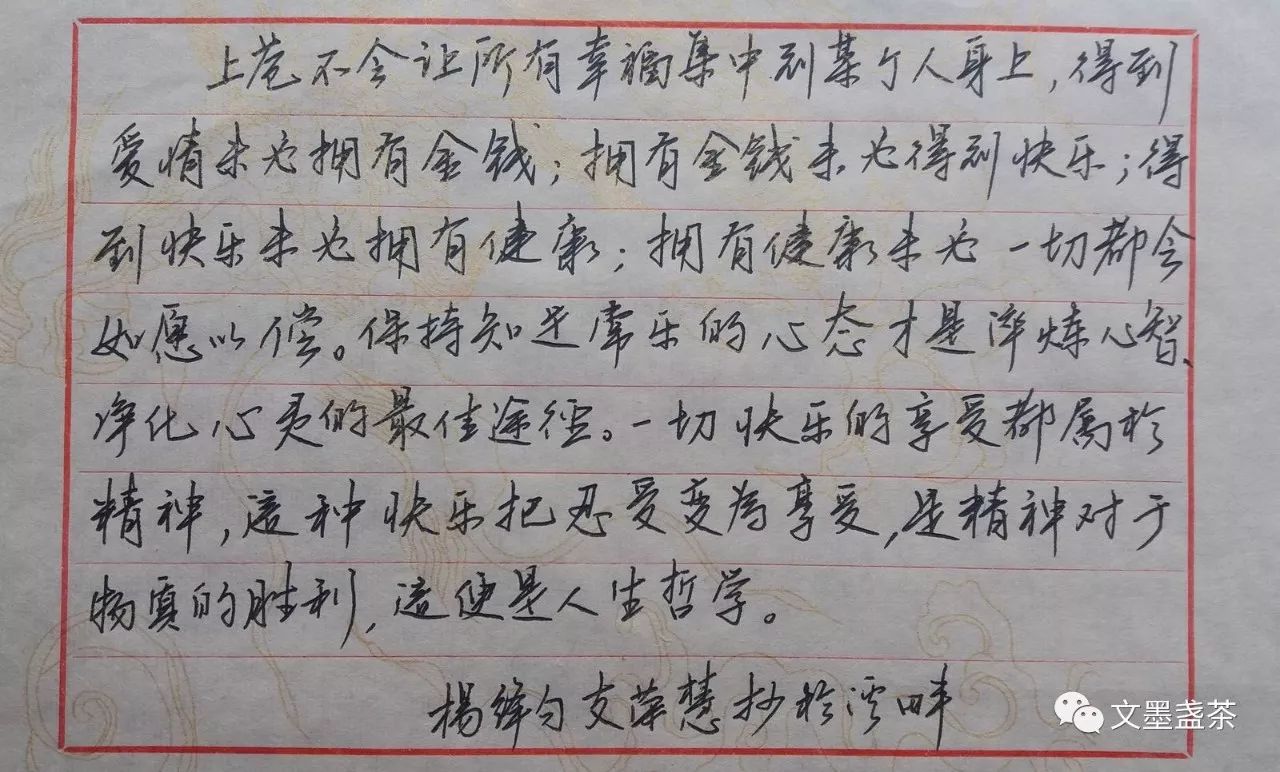 上苍不会让所有幸福集中到某个人身上，得到
爱情未必拥有金钱；拥有金钱未必得到快乐；得
到快乐未必拥有健康；拥有健康未必一切都会
如愿以偿。保持知足常乐的心态才是淬炼心智、
净化心灵的最佳途径。一切快乐的享受都属於
精神，这种快乐把忍受变为享受，是精神对于
物质的胜利，这便是人生哲学。
楊绛句 支荣慧抄於溪畔
文墨盏茶